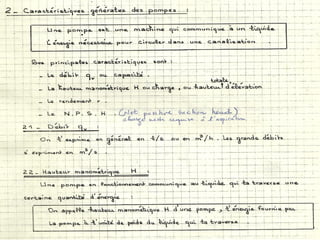 2_ Caractéristiques générales des pompes :
Une pompe est une machine qui communique à un liquide
l'énergie nécessaire pour circuler dans une canalisation.
Ses principales caractéristiques sont :
_ Le débit qv ou capacité.
_ La hauteur manométrique H ou charge, ou hauteur totale d'élévation
_ Le rendement r.
_ Le N.P.S.H. (Net positive Section head)
charge nette requise à l'aspiration
21_ Débit qv
On l'exprime en général en l/s ou en m³/h. Les grands débits
s'expriment en m³/s.
22_ Hauteur manométrique H
Une pompe en fonctionnement communique au liquide qui la traverse une
certaine quantité d'énergie :
On appelle hauteur manométrique H d'une pompe, l'énergie fournie par
la pompe à l'unité de poids du liquide qui la traverse.